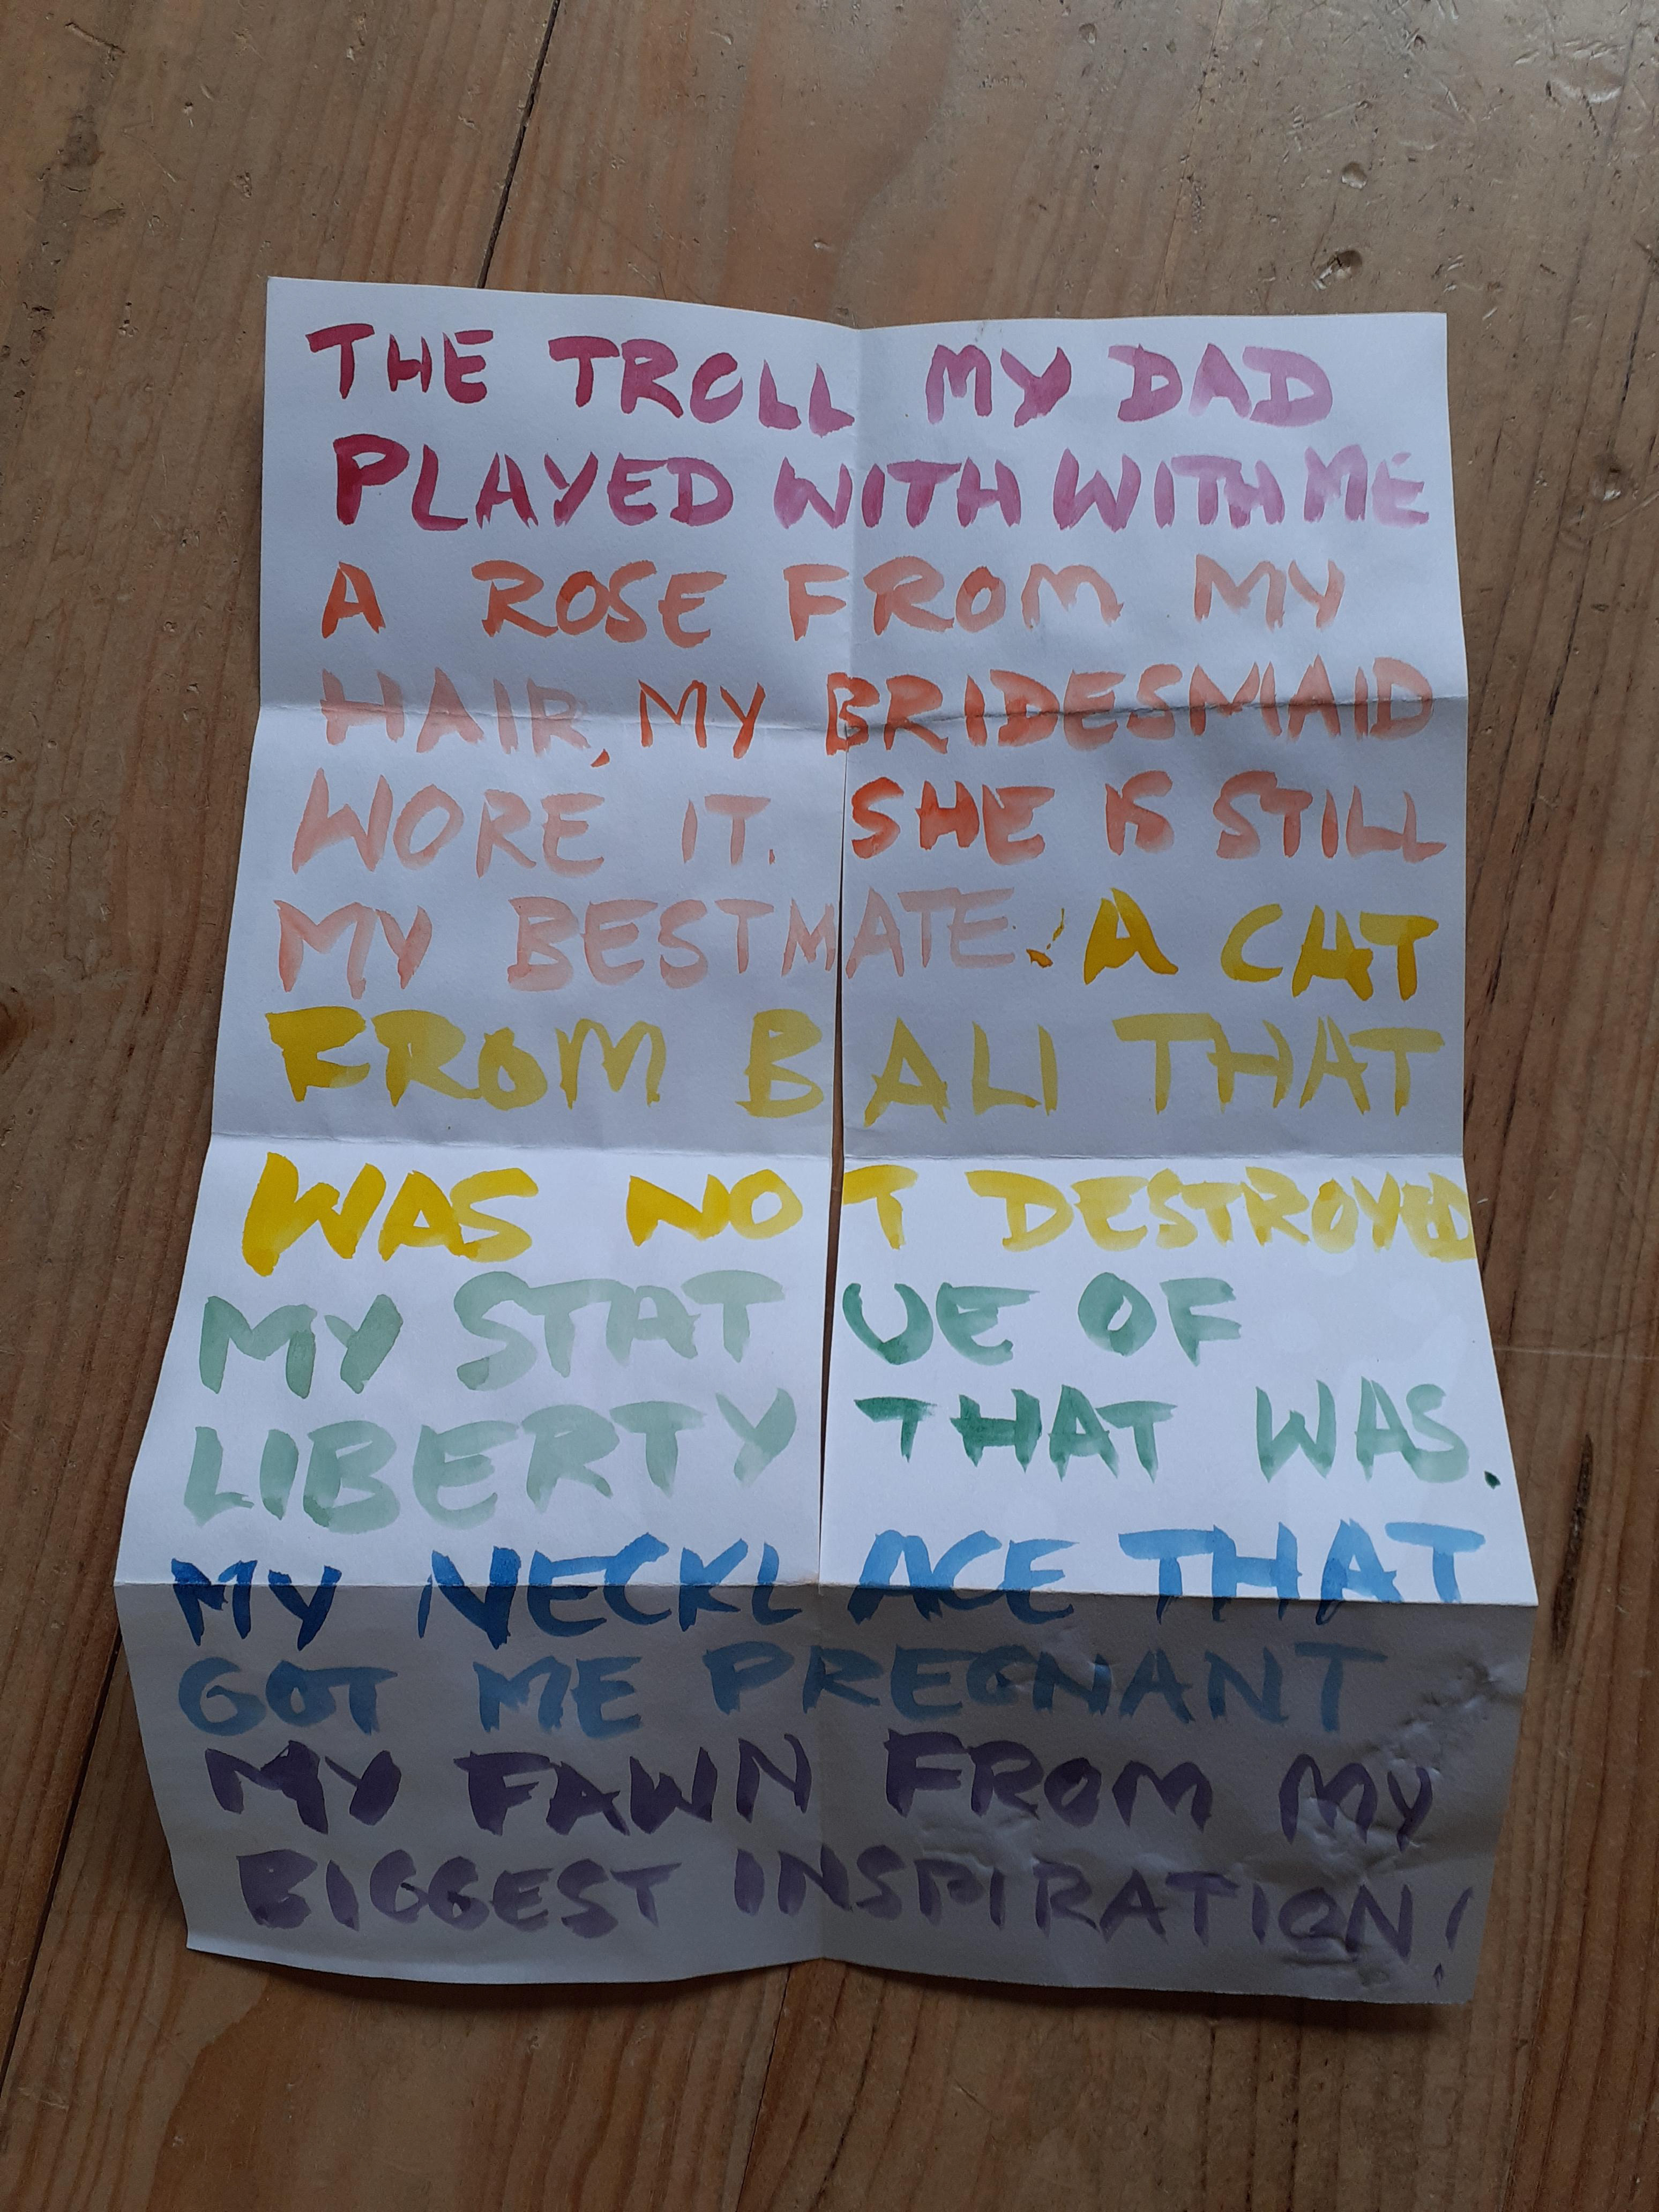 THE TROLL MY DAD
PLAYED WITH WITH ME
A ROSE FROM MY
HAIR, MY BRIDESMAID
WORE IT. SHE IS STILL
MY BESTMATE. A CAT
FROM BALI THAT
WAS NOT DESTROYED
MY STATUE OF
LIBERTY THAT WAS.
MY NECKLACE THAT
GOT ME PREGNANT
MY FAWN FROM MY
BIGGEST INSPIRATION!